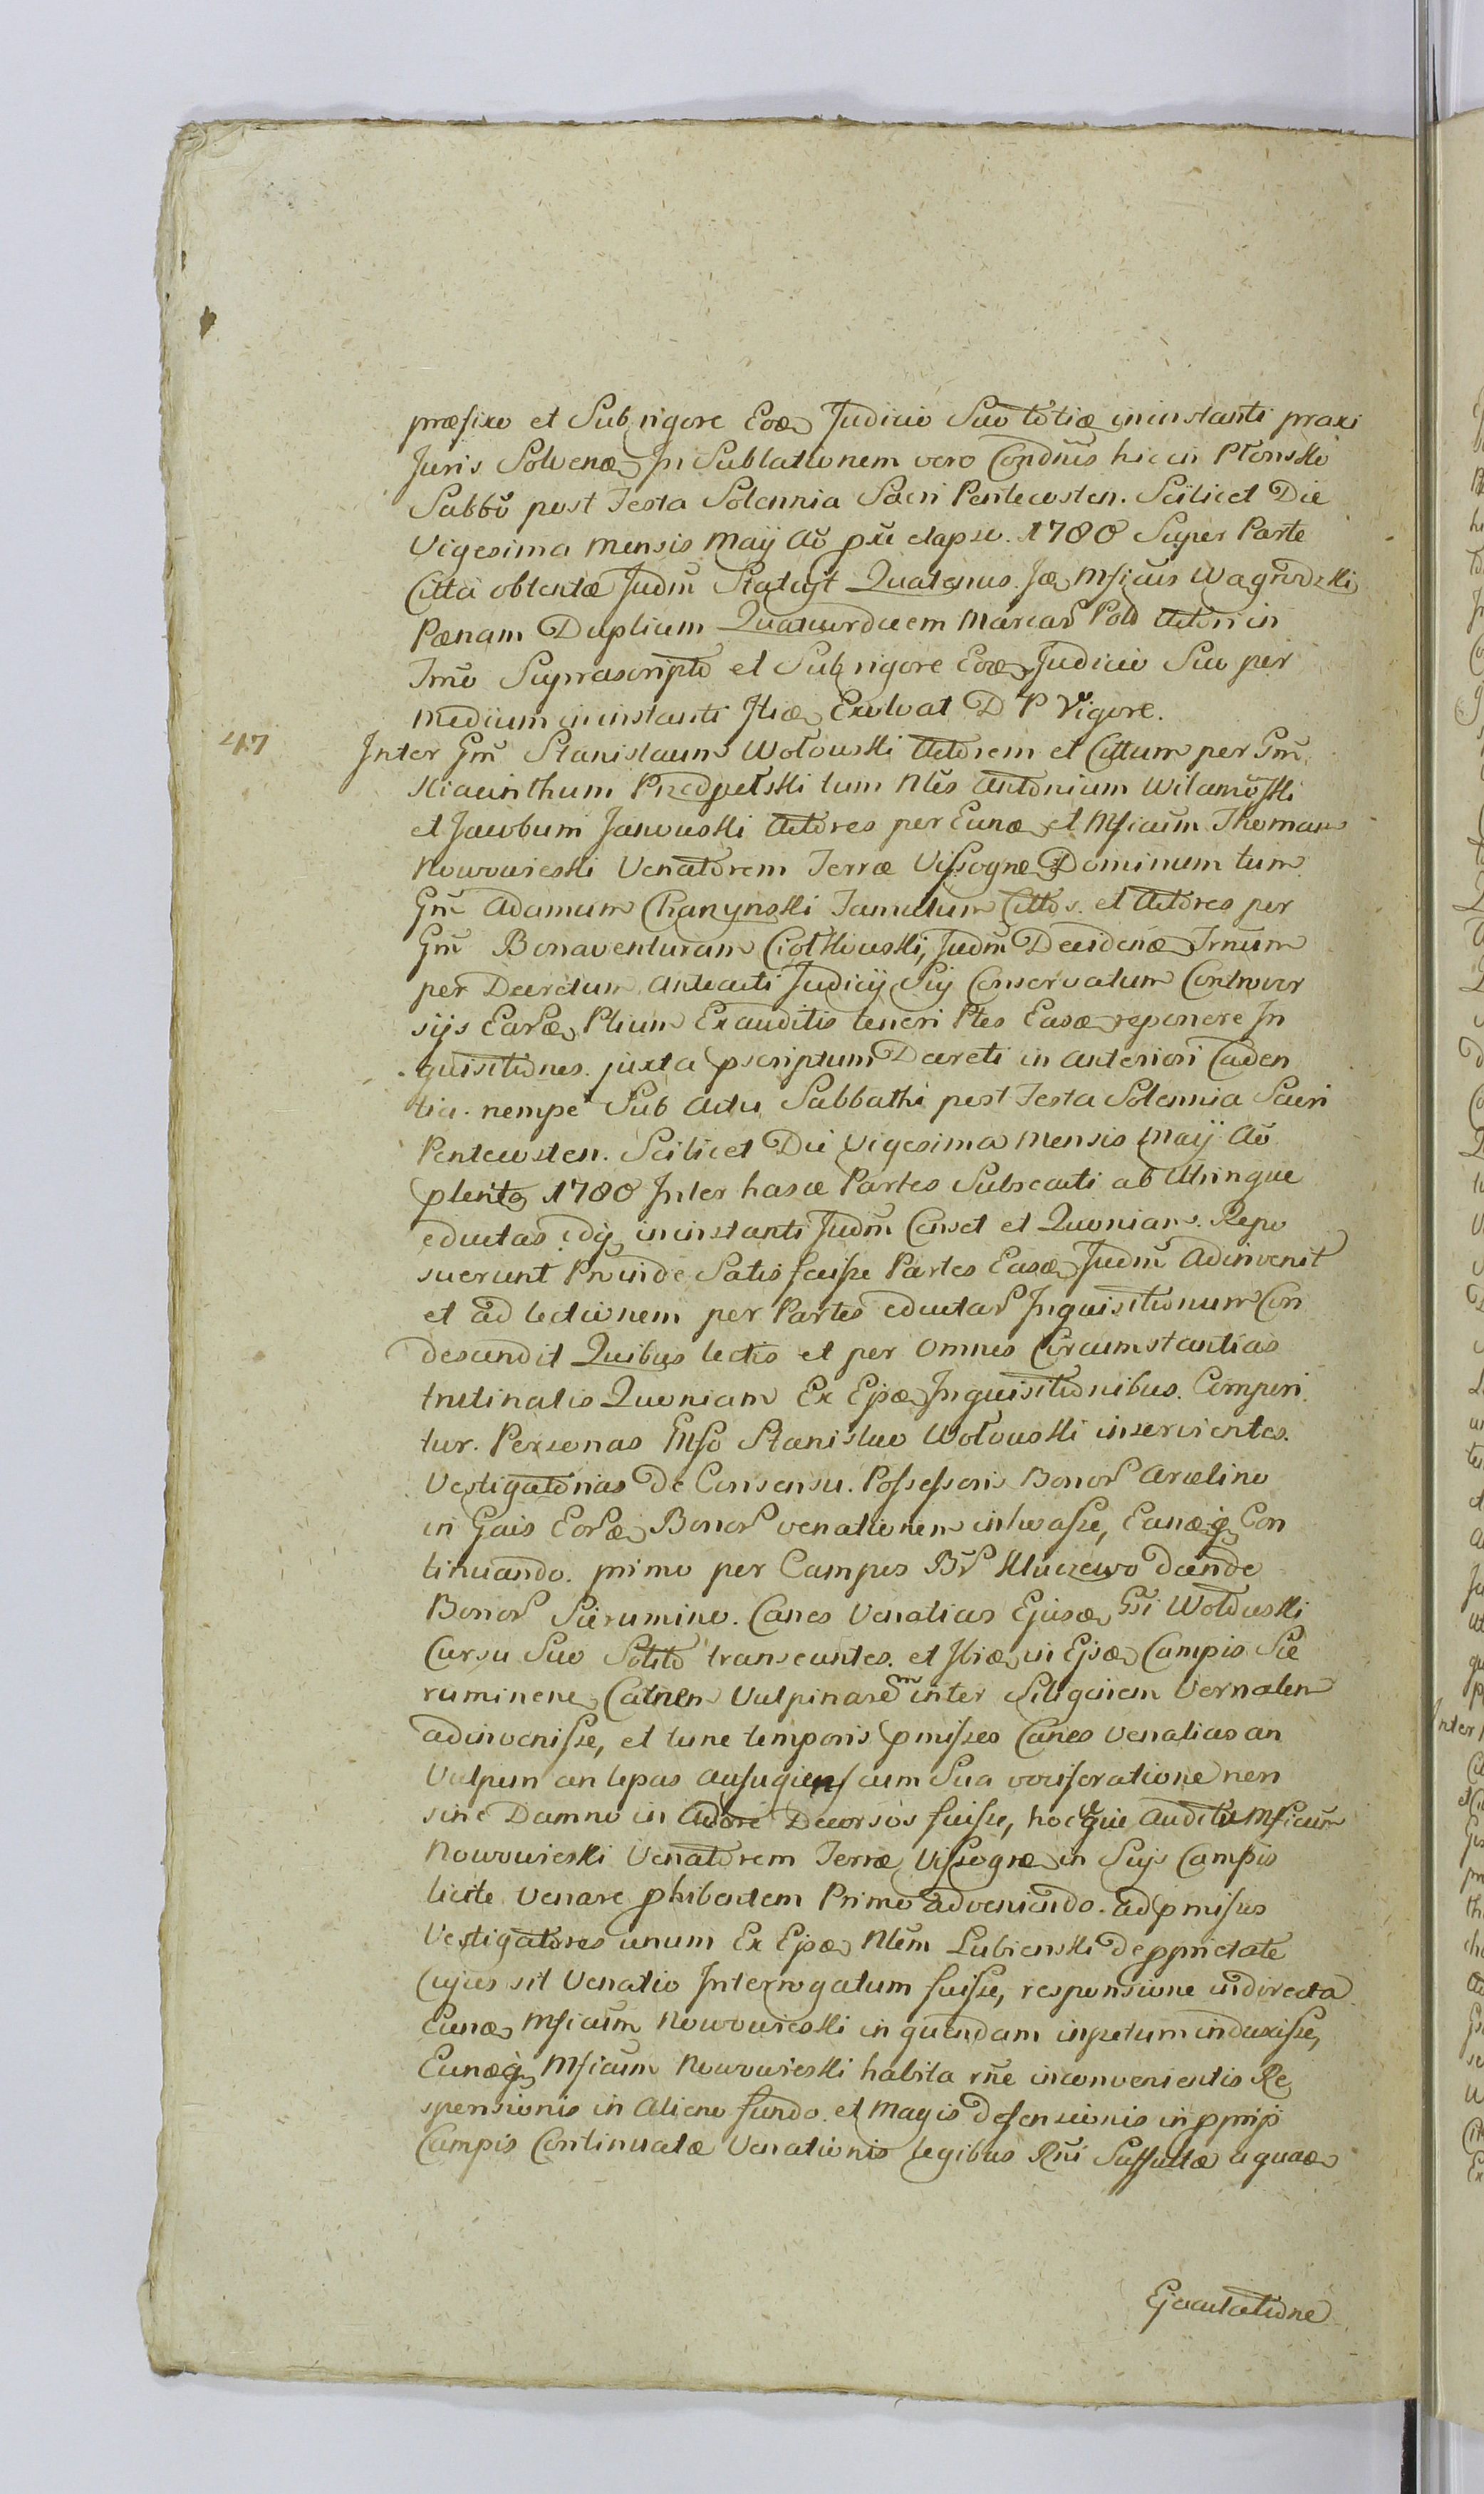 præfixo et Sub rigore Eoæ Judicio Suo totiæ in instanti praxi
Juris Solvenæ, In Sublationem vero Condnis hic in Płonsko
Sabbo post Festa Solennia Sacri Pentecosten. Scilicet Die
Vigesima Mensis Maij Ao pxe elapso. 1780 Super Parte
Citta obtentæ Judm Statuit Quatenus. Jæ Mficus Wagrodzki
Pænam Duplicem Quatuordecem Marcar Pold Actori in
Tmo Suprascripto et Sub rigore Eoæ Judicio Suo per
Medium in instanti Ibiæ Exolvat D P Vigore.
47
Inter Gm Stanislaum Wołowski Actorem et Cittum per Gm
Hiacinthum Przedpełski tum Nles Antonium Wilamowski
et Jacobum Janowski Actores per Eunæ et Mficum Thomam
Nowowieski Venatorem Terræ Vissogræ Dominum tum
Gm Adamum Charzynski Famulum Cittos. et Actores per
Gm Bonaventuram Ciołkowski, Judm Decidenæ Trnum
per Decretum Anteacti Judicij Sij Conservatum Controver
sijs Earæ Ptium Exauditis teneri Ptes Easæ reponere In
quisitiones. juxta pscriptum Decreti in anteriori Caden
tia. nempe Sub Actu Sabbathi post Festa Solennia Sacri
Pentecosten. Scilicet Die Vigesima Mensis Maij Ao
plenta 1780 Inter hasce Partes Subsecuti ab Utrinque
eductas idq in instanti Judm Censet et Quoniam. Repo
suerunt Proinde Satis fecisse Partes Easæ Judm Adinvenit
et ad lectionem per Partes eductar Inquisitionum Con
descendit Quibus lectis et per Omnes Circumstantias
trutinatis Quoniam Ex Ejsæ Inquisitionibus. Comperi
tur. Personas Gnso Stanislao Wołowski inservientes.
Vestigatorias De Consensu. Possessoris Bonor Arcelino
in Gais Eoræ Bonor venationem inchoasse, Eanæq Con
tinuando. primo per Campos Br Kluczewo deinde
Bonor Sierumino. Canes Venaticos Ejusæ Gsi Wołowski
Cursu Suo Solito transeuntes. et Ibiæ in Ejsæ Campis Sie
ruminene Catnlen Vulpinarem inter Siliginem Vernalem
adinvenisse, et tunc temporis pmissos Canes Venaticos an
Vulpem an lepas aufugiens cum Sua vociferatione non
sine Damno in Adore Decorsos fuisse, hocque Auditu Mficum
Nowowieski Venatorem Terræ Vissogræ in Suis Campis
licite Venare phibentem Primo adveniendo. ad pmisos
Vestigatores unum Ex Ejsæ Nlem Lubienski de pprietate
Cujus sit Venatio Interrogatum fuisse, responsione indirecta
Eunæ Mficum Nowowieski in quendam inpetum induxisse,
Eunæq Mficum Nowowieski habita rne inconvenientis Re
sponsionis in Alieno fundo. et Magis defensionis in pprijs
Campis Continuatæ Venationis legibus Rni Suffultæ aquaæ
Ejaculatione